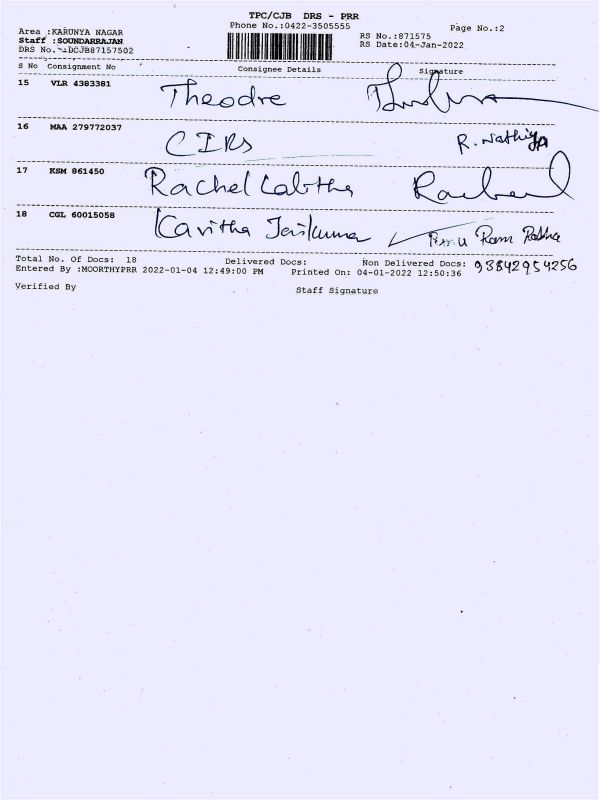 TPC/CJB DRS - PRR
Phone No.:0422-3505555 Page No.:2
Area :KARUNYA NAGAR RS No.:871575
Staff :SOUNDARRAJAN RS Date:04-Jan-2022
DRS No. DCJB87157502
S No Consignment No Consignee Details Signature
15 VLR 4383381 Theodre
16 MAA 279772037 CIRS R. Nathiya
17 KSM 861450 Rachel
18 CGL 60015058 Kavitha Jaikumar Ram
Total No. Of Docs: 18 Delivered Docs: Non Delivered Docs:
Entered By :MOORTHYPRR 2022-01-04 12:49:00 PM Printed On: 04-01-2022 12:50:36
Verified By Staff Signature